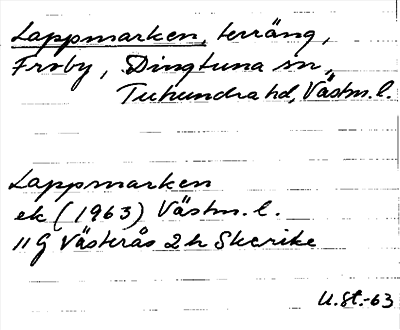 Lappmarken, terräng,
Froby, Dingtuna sn,
Tuhundra hd, Västm. l.
Lappmarken
ek (1963) Västm. l.
11 G Västerås 2 h Skerike
U.St.-63